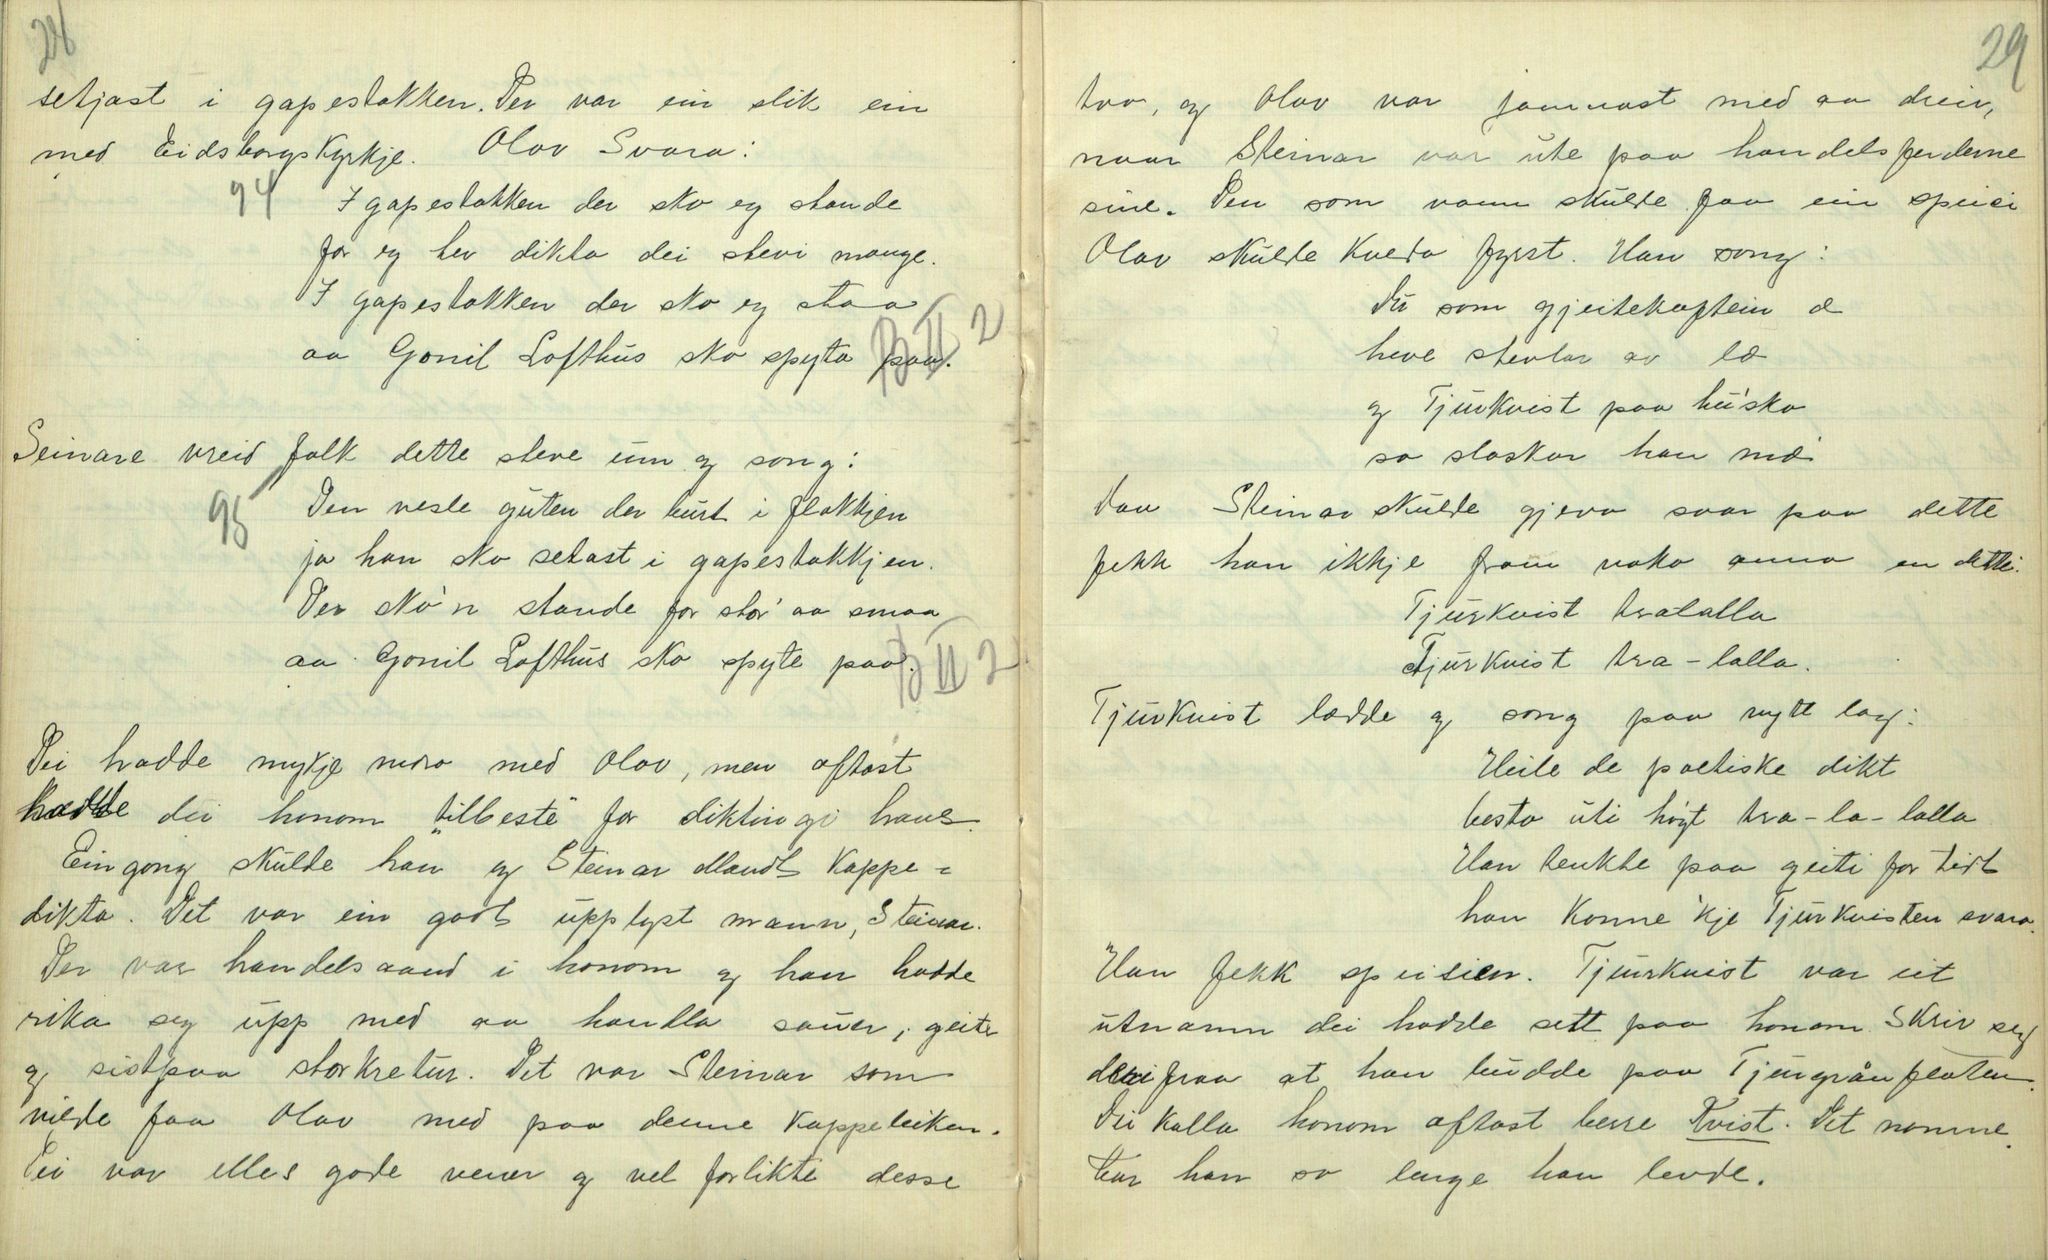 28
setjast i gapestokken. Der var ein slik ein
med Eidsborgskyrkje. Olav Svara:
94
I gapestokken der sko eg stande
for eg hev dikta dei stevi mange.
I gapestokken der sko eg staa
aa Gonil Lofthus sko spyta paa.
B II 2
Seinare vreid folk dette steve um og song:
95
Den vesle guten der burt i flokkjen
ja han sko setast i gapestokkjen.
Der sko'n stande for stor' aa smaa
aa Gonil Lofthus sko spyte paa.
B II 2
Dei hadde mykje moro med Olav, men oftast
hadde dei honom "tilbeste" for diktingi hans.
Ein gong skulde han og Steinar Mandt kappe=
dikta. Det var ein godt upplyst mann, Steinar.
Der var handelsaand i honom og han hadde
rika seg upp med aa handla sauer, geiter
og sistpaa storkretur. Det var Steinar som
vilde faa Olav med paa denne kappeleiken.
Dei var elles gode vener og vel forlikte desse
29
tvo, og Olav var jamnast med aa dreiv,
naar Steinar var ute paa handelsferderne
sine. Den som vann skulde faa ein speisi
Olav skulde kveda fyrst. Han song:
Du som gjeitekaptein æ
heve stevlar av læ
og Tjurkvist paa hu'sko
so slaskar han mæ
Daa Steinar skulde gjeva svar paa dette
fekk han ikkje fram noko anna en dette:
Tjurkvist tralalla
Tjurkvist tra-lalla.
Tjurkvist lædde og song paa nytt lag:
Heile de poetiske dikt
besto uti høgt tra-la-lalla
Han tenkte paa geiti for tidt
han konne 'kje Tjurkvisten svara.
Han fekk speisien. Tjurkvist var eit
utnamn dei hadde sett paa honom. Skriv seg
derifraa at han budde paa Tjurgrånflaten.
Dei kalla honom oftast berre Kvist. Det namne
bar han so lenge han levde.